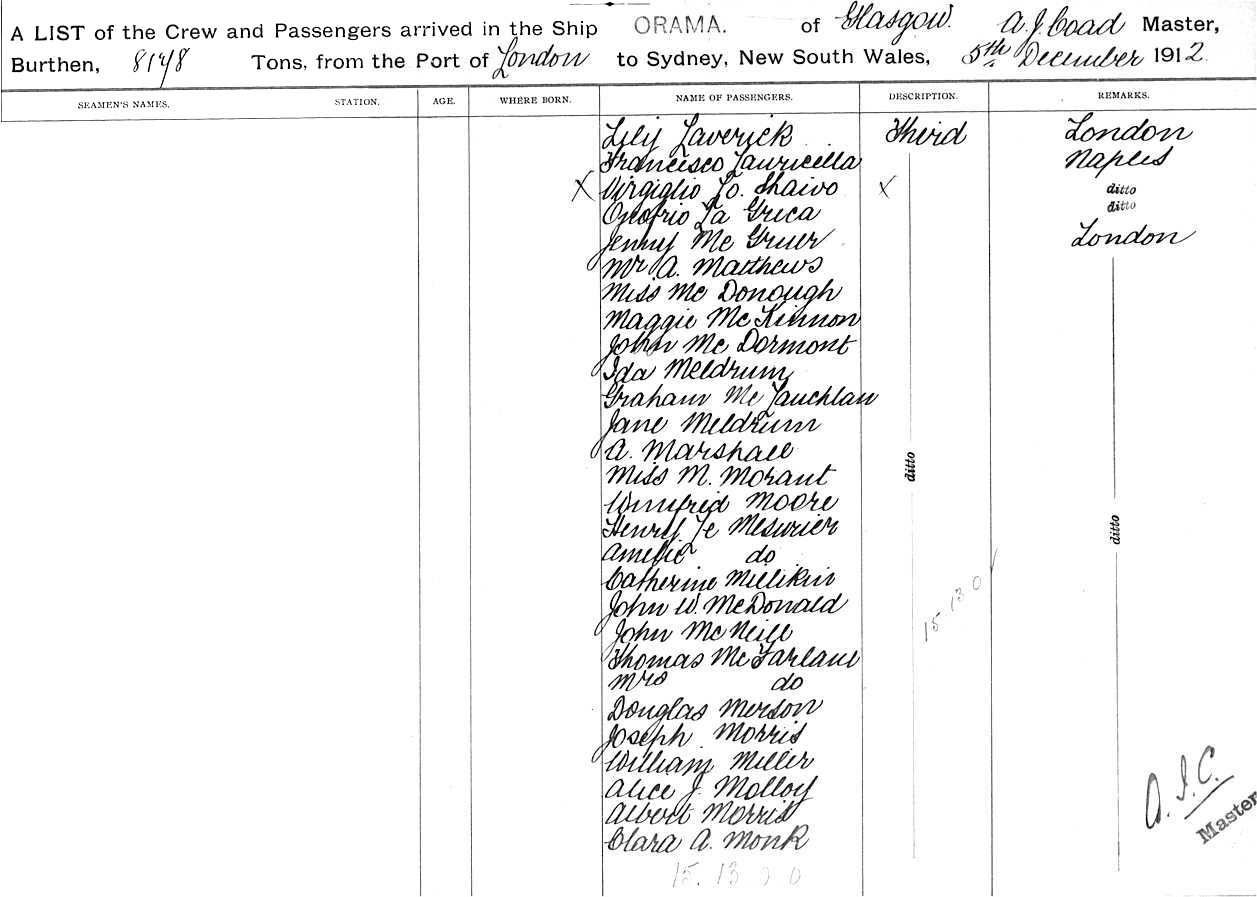 A LIST of the Crew and Passengers arrived in the Ship ORAMA. of Glasgow. A. J. Coad Master,
Burthen, 8148 Tons, from the Port of London to Sydney, New South Wales, 5th December 1912
SEAMEN'S NAMES. STATION. AGE. WHERE BORN. NAME OF PASSENGERS. DESCRIPTION. REMARKS.
Lily Laverick Third London
Francisco Lauricella Naples
X Virgiglio Lo. Shaivo X ditto
Onofrio La Greca ditto
Jenny Mc Gruer London
Mr A. Matthews
Miss Mc Donough
Maggie Mc Kinnon
John Mc Dormont
Ida Meldrum
Graham Mc Lauchlan
Jane Meldrum
A. Marshall
ditto
Miss M. Morant
Winifred Moore
Henry Le Mesurier
ditto
Amelie do
Catherine Millikin
John W. McDonald
15 13 0
John McNeill
Thomas McFarlane
Mrs do
Douglas Merson
Joseph Morris
William Miller
Alice J. Molloy
Albert Morris
A. J. C.
Master
Clara A. Monk
15. 13 0 0